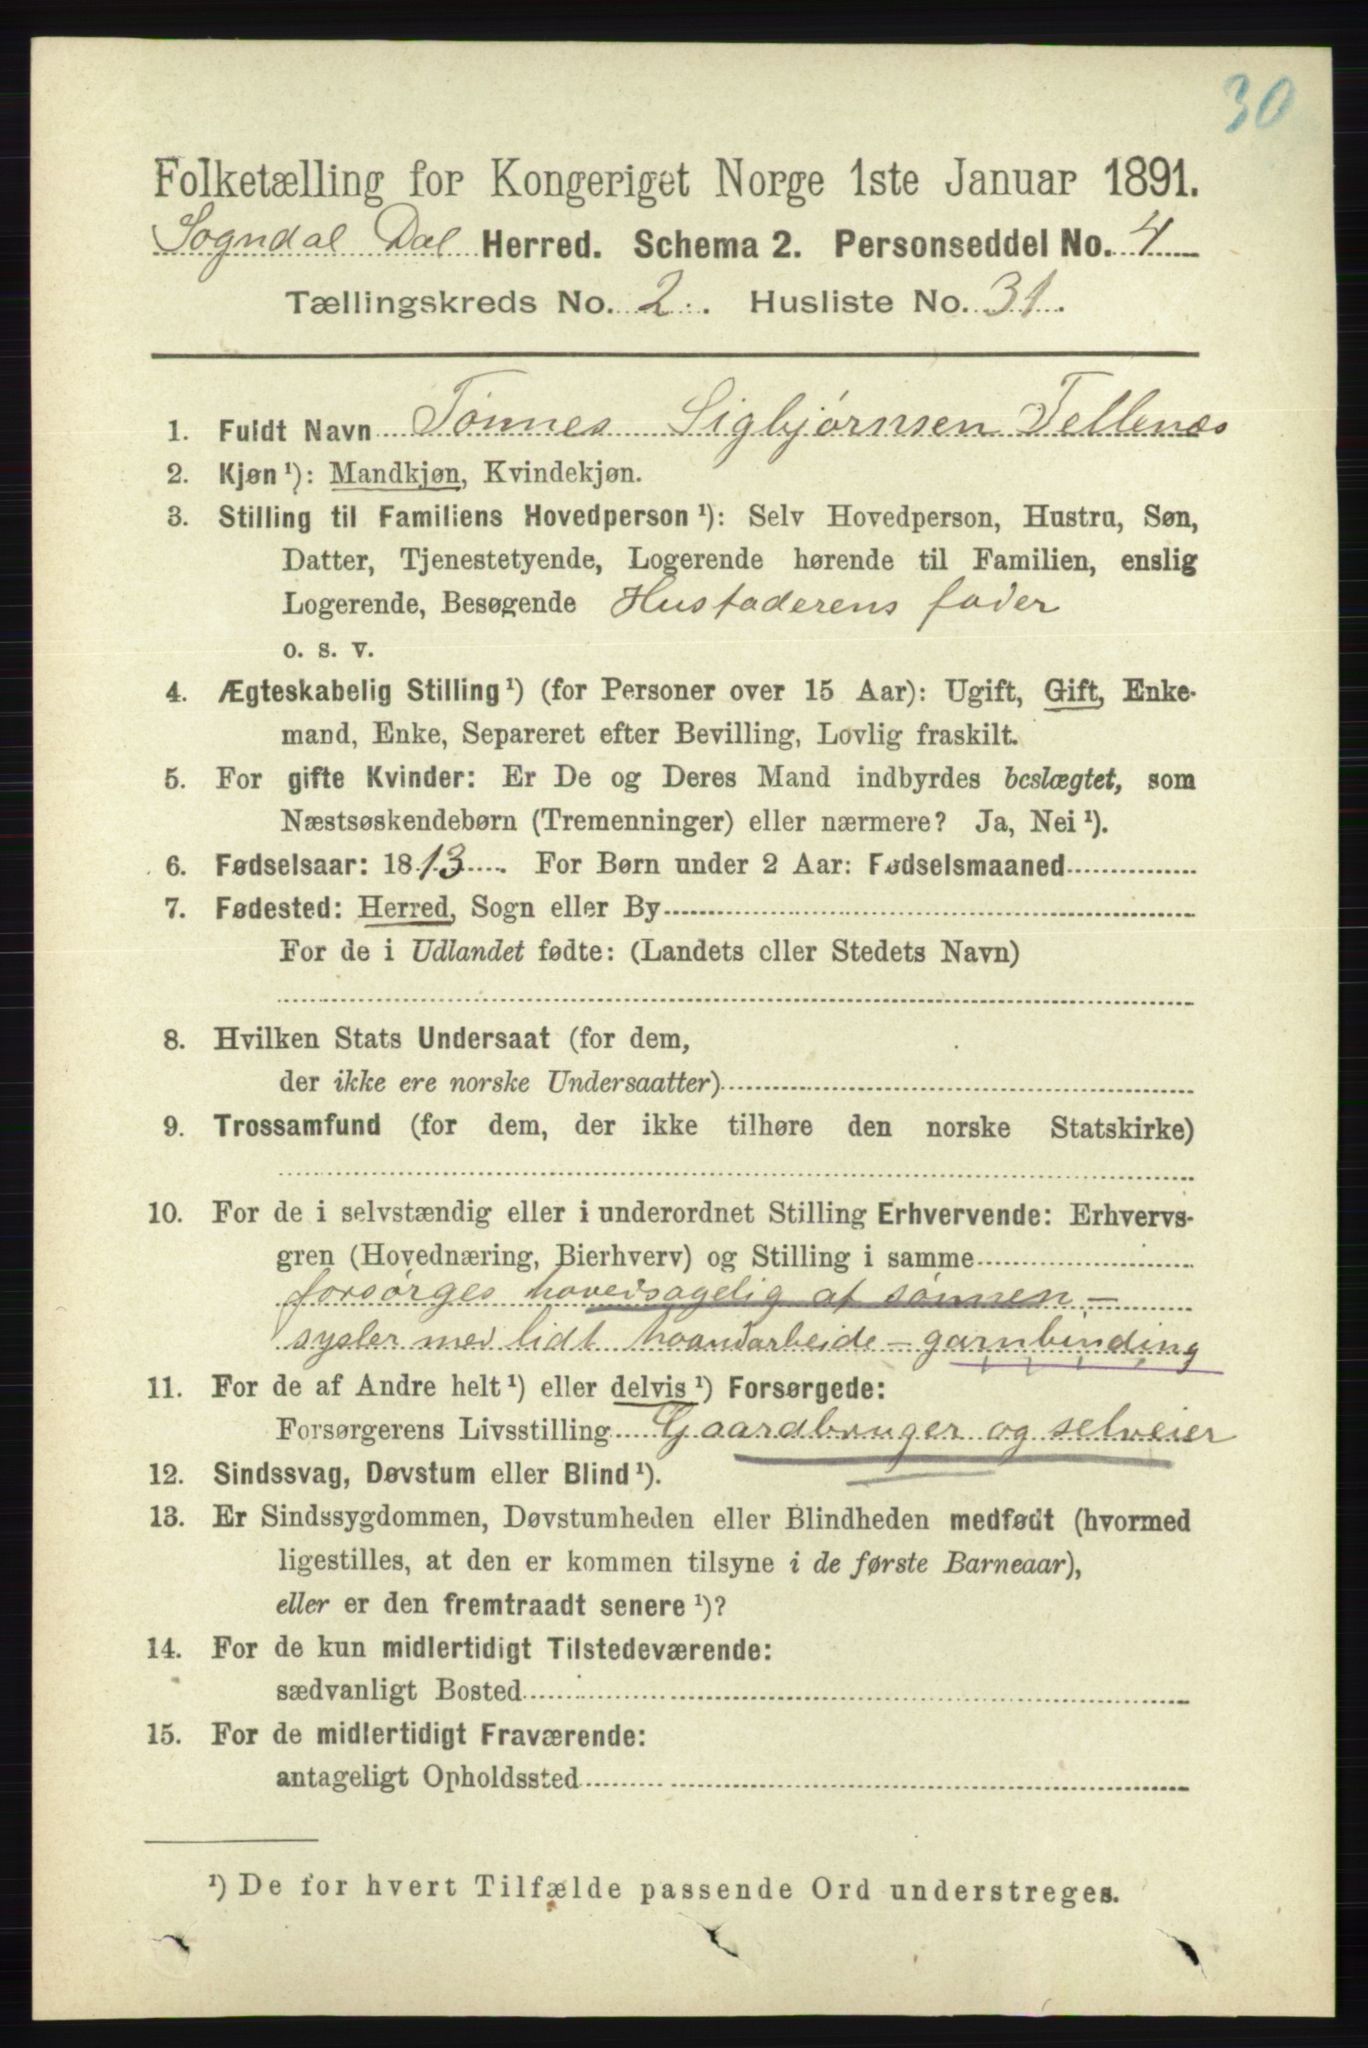 30
Folketælling for Kongeriget Norge 1ste Januar 1891.
Sogndal Dal Herred. Schema 2. Personseddel No. 4
Tællingskreds No. 2. Husliste No. 31.
1. Fuldt Navn Tønnes Sigbjørnsen Tellenæs
2. Kjøn ¹): Mandkjøn, Kvindekjøn.
3. Stilling til Familiens Hovedperson ¹): Selv Hovedperson, Hustru, Søn,
Datter, Tjenestetyende, Logerende hørende til Familien, enslig
Logerende, Besøgende Husfaderens fader
o. s. v.
4. Ægteskabelig Stilling ¹) (for Personer over 15 Aar): Ugift, Gift, Enke-
mand, Enke, Separeret efter Bevilling, Lovlig fraskilt.
5. For gifte Kvinder: Er De og Deres Mand indbyrdes beslægtet, som
Næstsøskendebørn (Tremenninger) eller nærmere? Ja, Nei ¹).
6. Fødselsaar: 1813. For Børn under 2 Aar: Fødselsmaaned
7. Fødested: Herred, Sogn eller By
For de i Udlandet fødte: (Landets eller Stedets Navn)
8. Hvilken Stats Undersaat (for dem,
der ikke ere norske Undersaatter)
9. Trossamfund (for dem, der ikke tilhøre den norske Statskirke)
10. For de i selvstændig eller i underordnet Stilling Erhvervende: Erhvervs-
gren (Hovednæring, Bierhverv) og Stilling i samme
forsørges hovedsagelig af sønnen -
sysler med lidt haandarbeide - garnbinding
11. For de af Andre helt ¹) eller delvis ¹) Forsørgede:
Forsørgerens Livsstilling Gaardbruger og selveier
12. Sindssvag, Døvstum eller Blind ¹).
13. Er Sindssygdommen, Døvstumheden eller Blindheden medfødt (hvormed
ligestilles, at den er kommen tilsyne i de første Barneaar),
eller er den fremtraadt senere ¹)?
14. For de kun midlertidigt Tilstedeværende:
sædvanligt Bosted
15. For de midlertidigt Fraværende:
antageligt Opholdssted
¹) De for hvert Tilfælde passende Ord understreges.